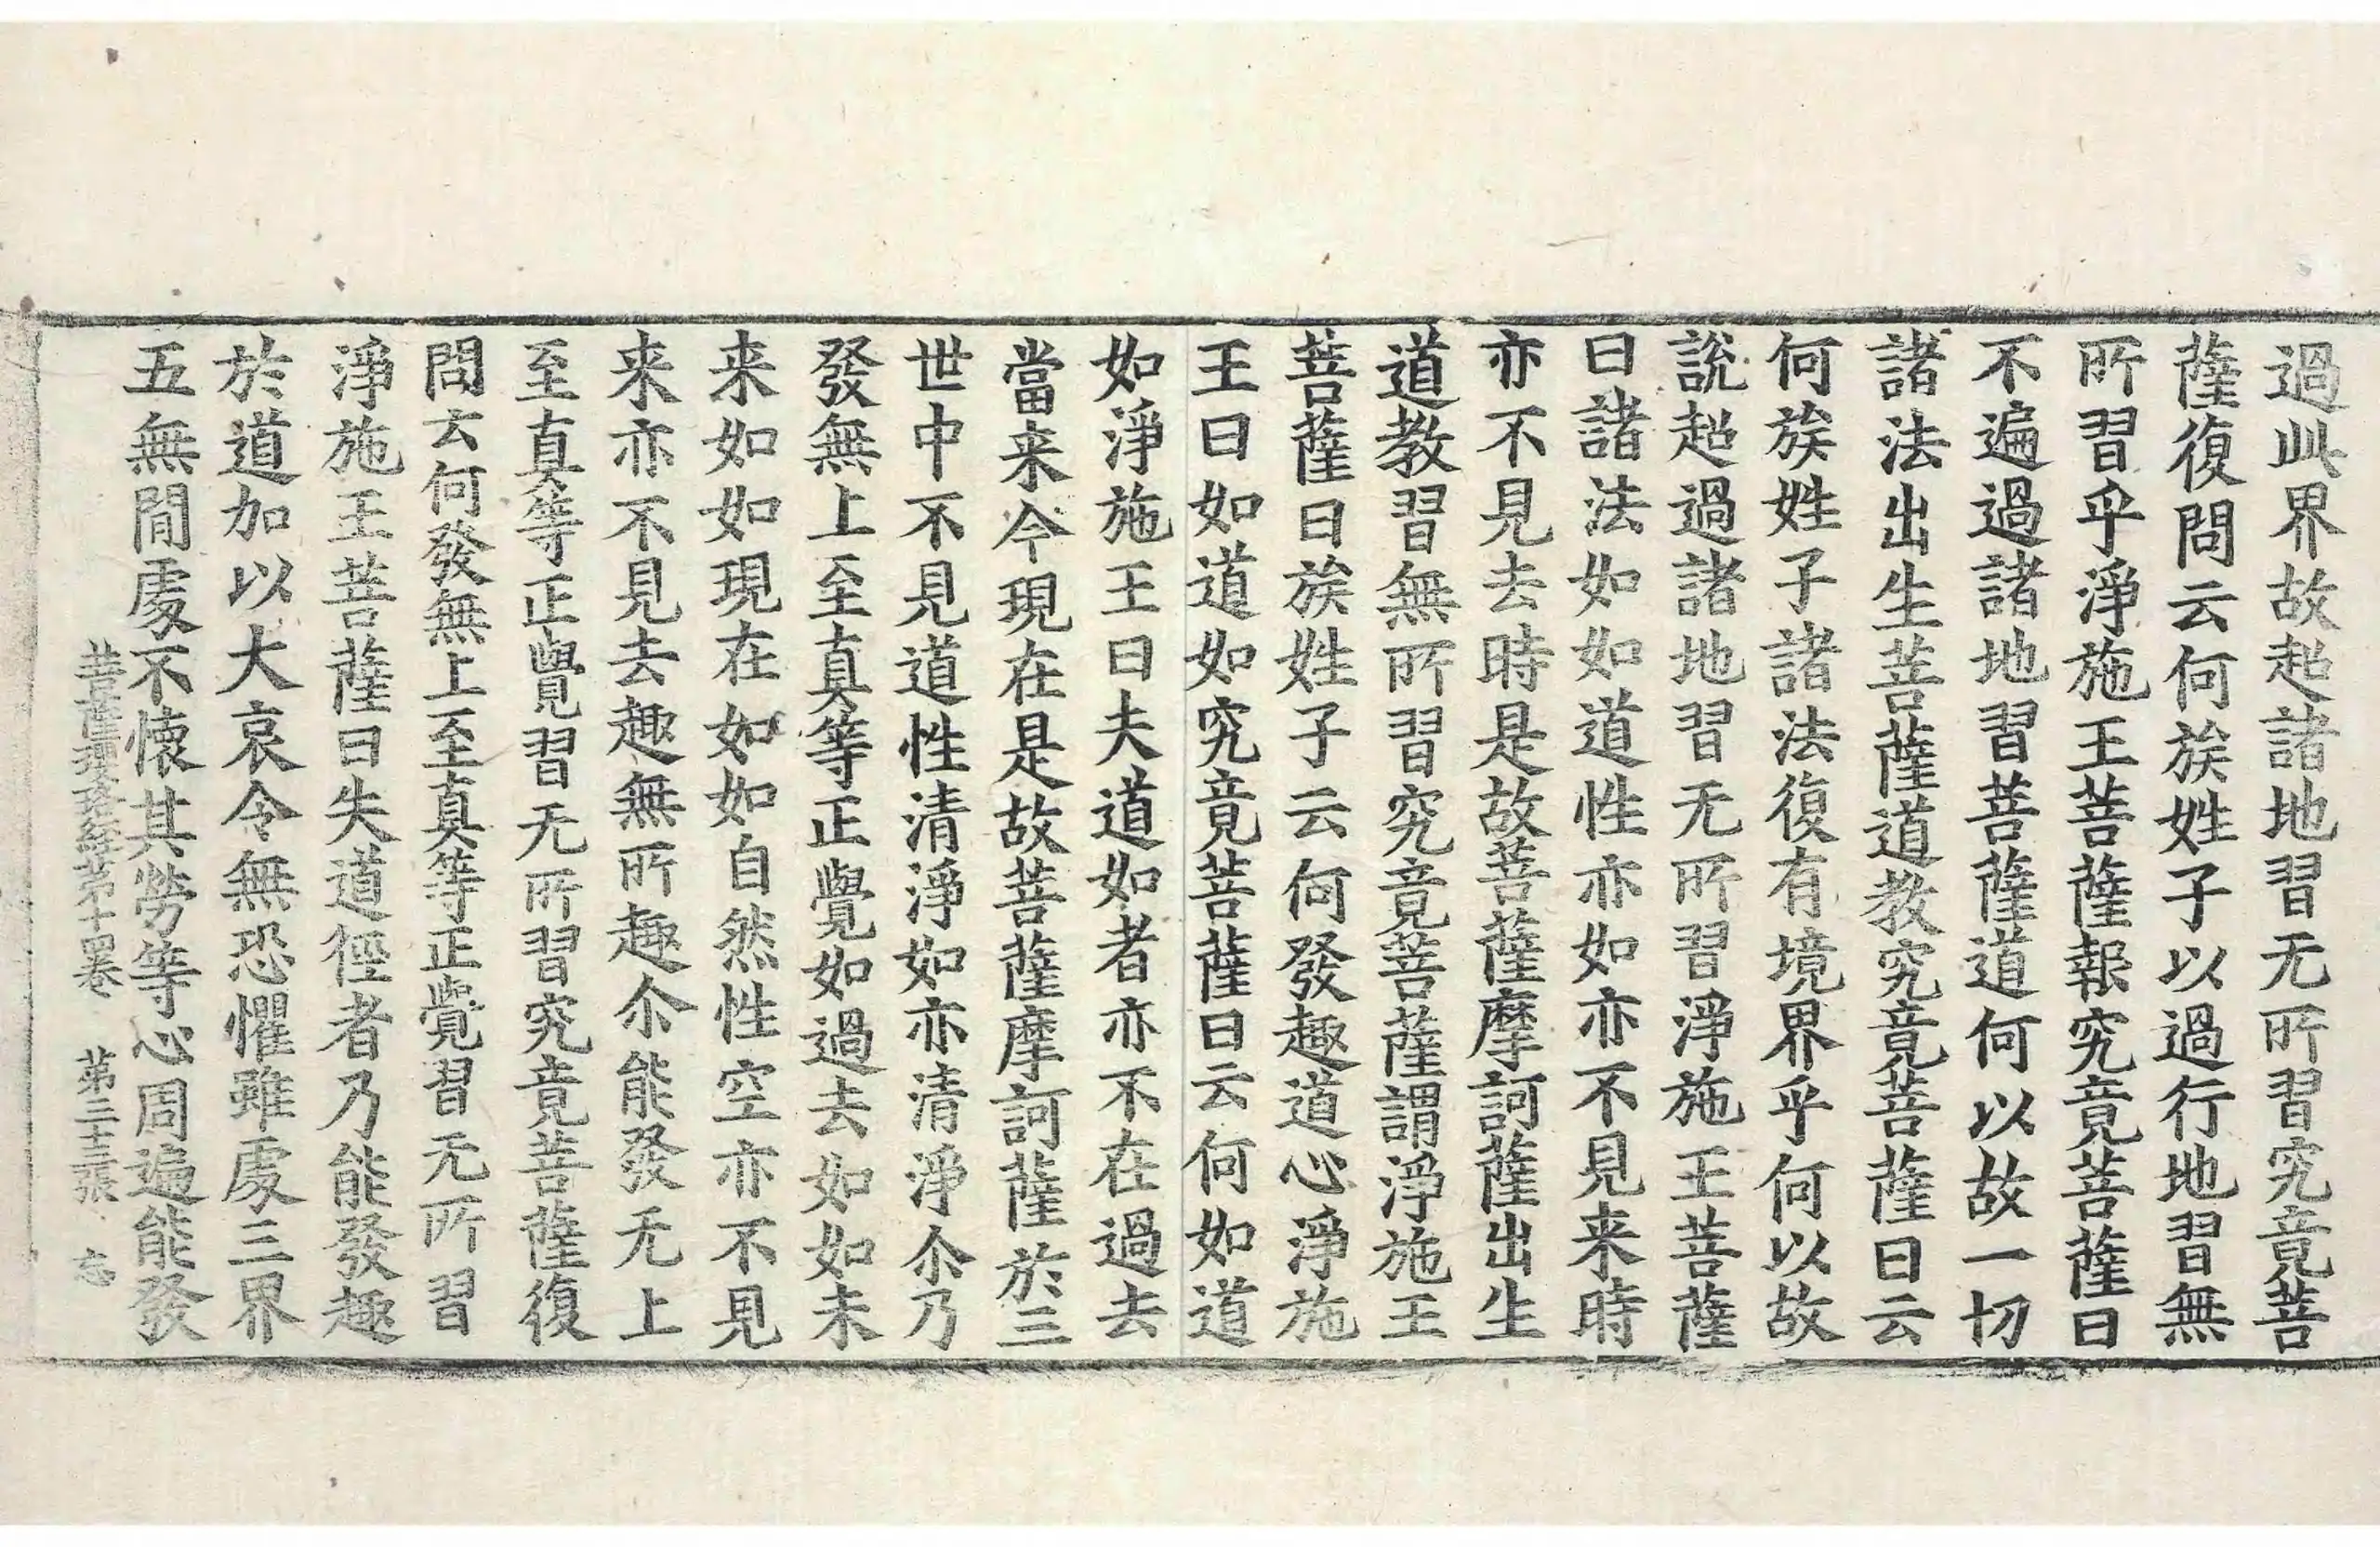 過此界故超諸地習无所習究竟菩
薩復問云何族姓子以過行地習無
所習乎淨施王菩薩報究竟菩薩曰
不遍過諸地習菩薩道何以故一切
諸法出生菩薩道教究竟菩薩曰云
何族姓子諸法復有境界乎何以故
說超過諸地習无所習淨施王菩薩
曰諸法如如道性亦如亦不見来時
亦不見去時是故菩薩摩訶薩出生
道教習無所習究竟菩薩謂淨施王
菩薩曰族姓子云何發趣道心淨施
王曰如道如究竟菩薩曰云何如道
如淨施王曰夫道如者亦不在過去
當来今現在是故菩薩摩訶薩於三
世中不見道性清淨如亦清淨尒乃
發無上至真等正覺如過去如如未
来如如現在如如自然性空亦不見
来亦不見去趣無所趣尒能發无上
至真等正覺習无所習究竟菩薩復
問云何發無上至真等正覺習无所習
淨施王菩薩曰失道徑者乃能發趣
於道加以大哀令無恐懼雖處三界
五無閒處不懷其勞等心周遍能發
菩薩瓔珞經第十四卷 第二十三張 忘